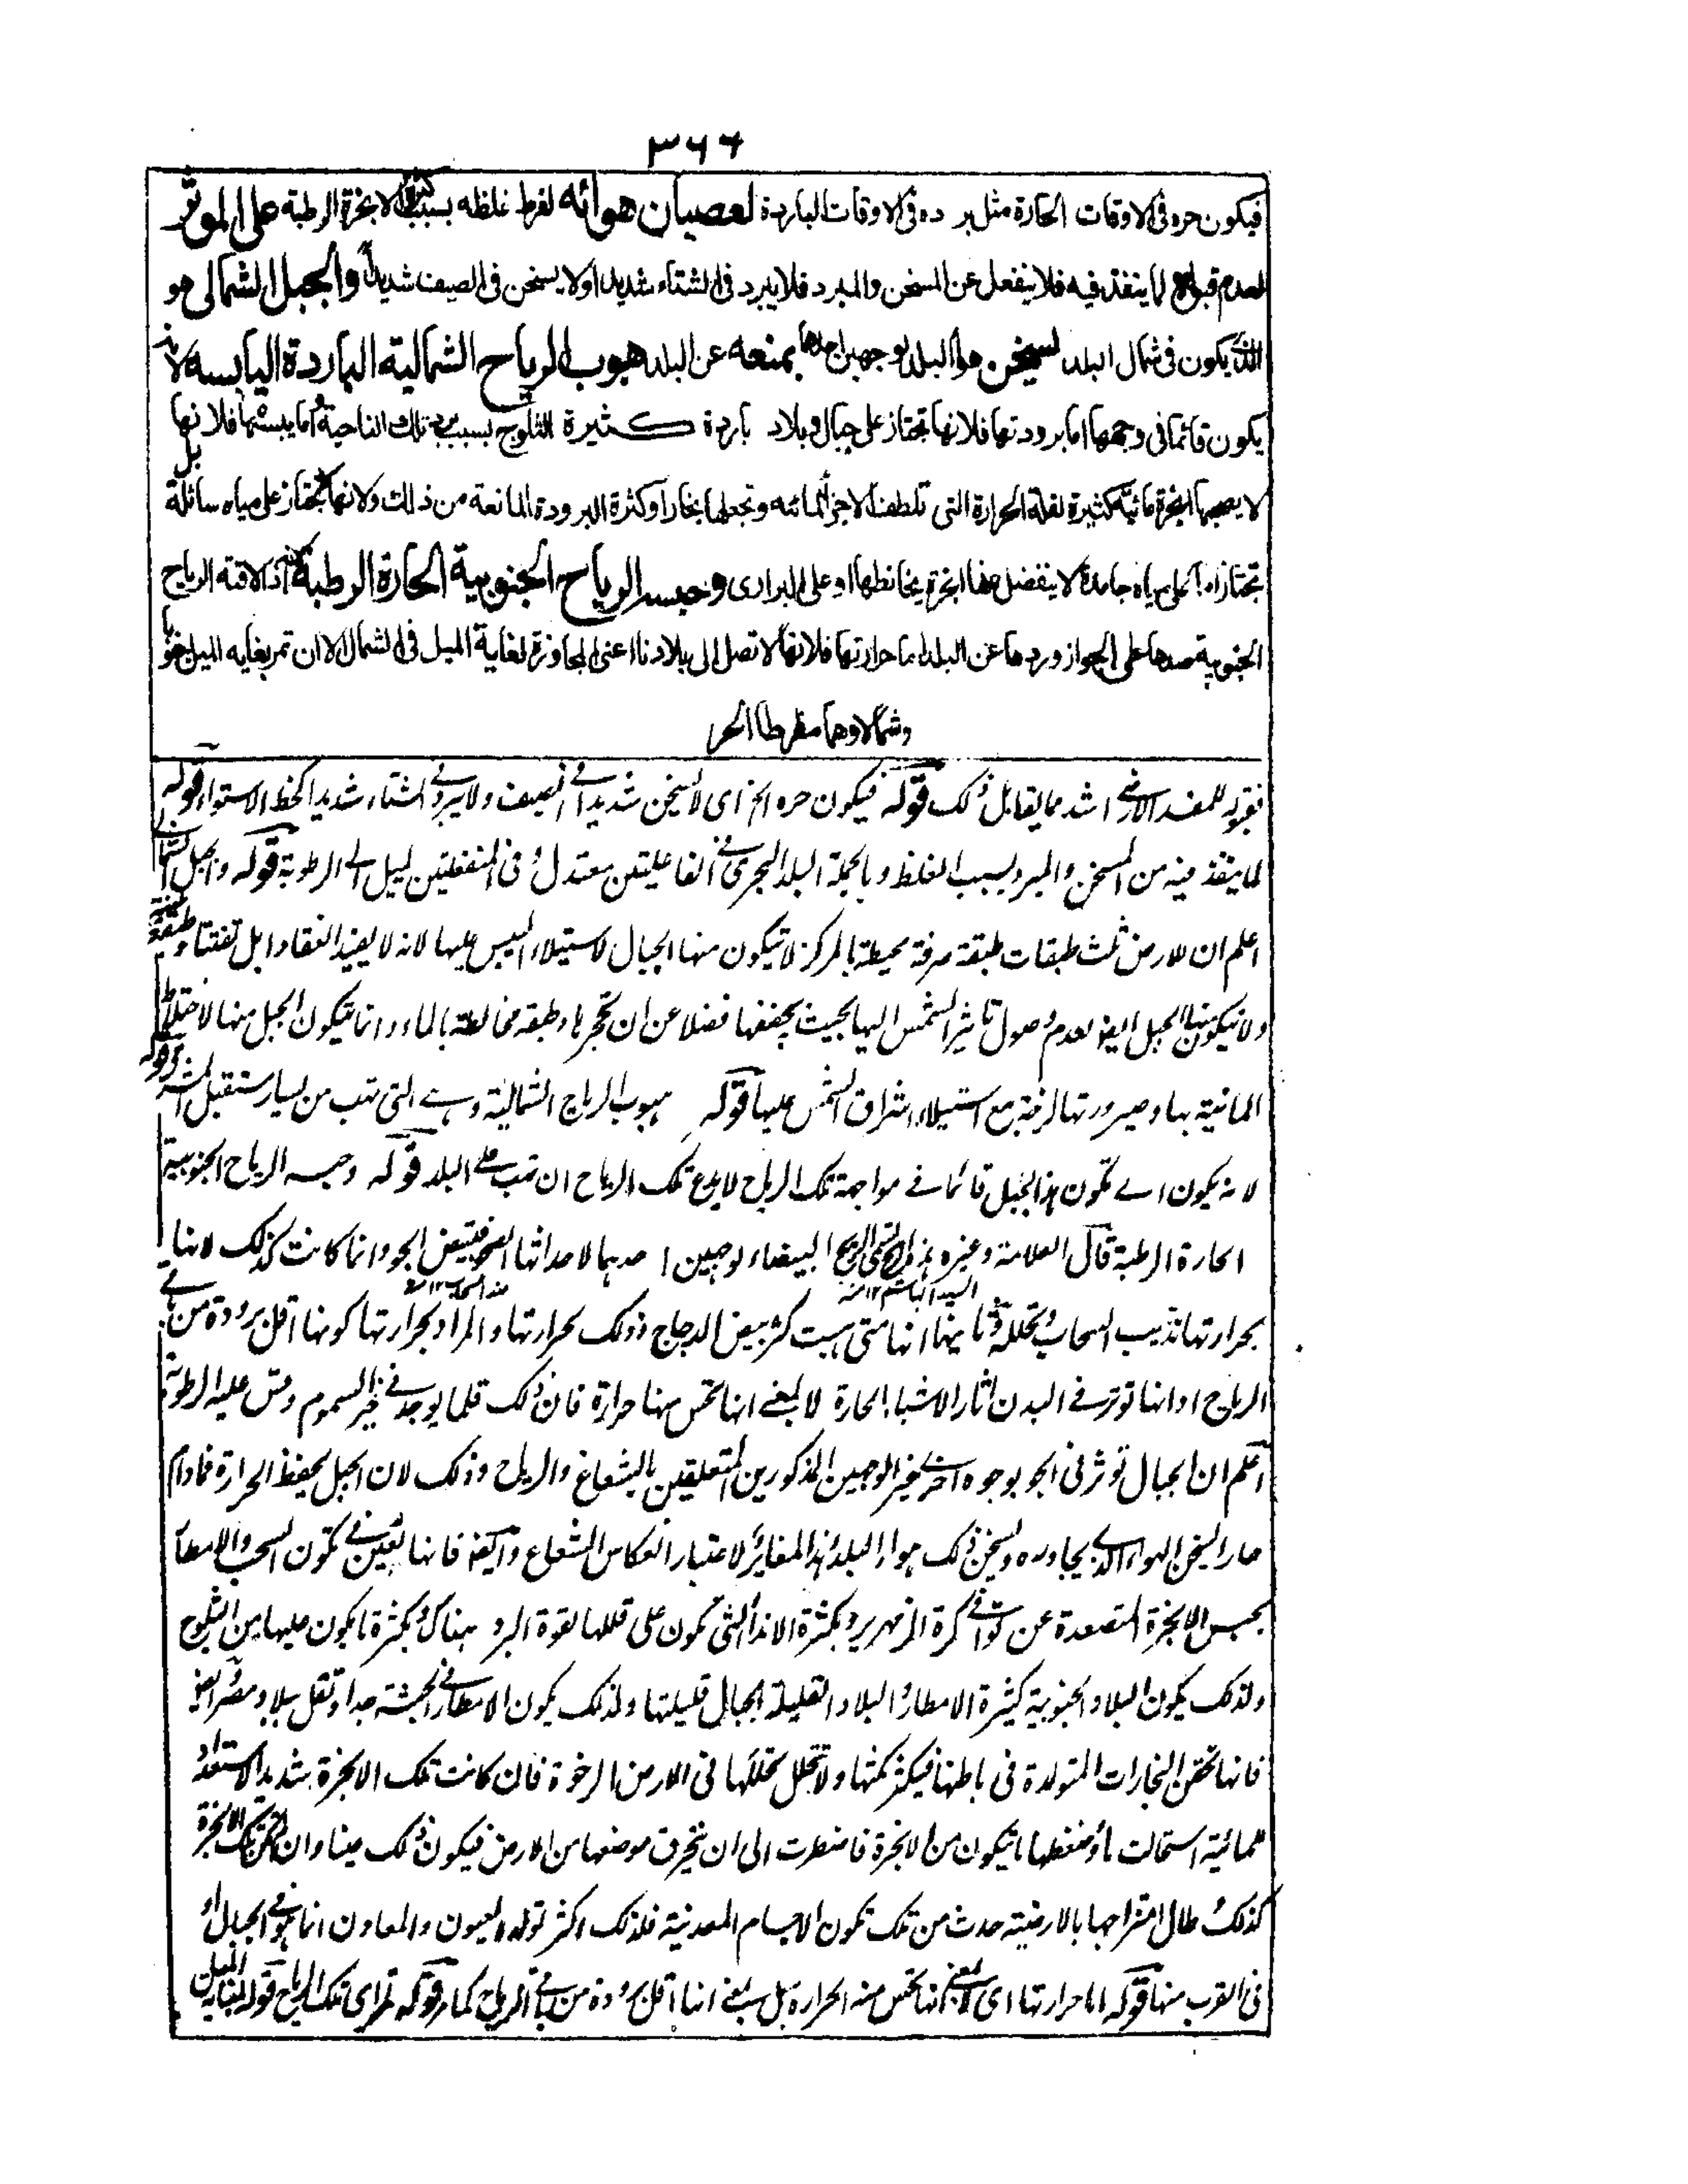 ٣٦٦
فيكون حره فى الاوقات الحارة مثل برده فى الاوقات الباردة لعصيان هوائه لفرط غلظه بسبب كثرة الابخرة الرطبة على المؤثر
لعدم قبوله لما ينفذ فيه فلا ينفعل عن المسخن والمبرد فلا يبرد فى الشتاء شديدا ولا يسخن فى الصيف شديدا والجبل الشمالى هو
الذى يكون فى شمال البلد لسيخن هواء البلد بوجهين احدهما بمنعه عن البلد هبوب الرياح الشمالية الباردة اليابسه لانه
يكون قائما فى وجهها اما برودتها فلانها تجتاز على جبال وبلاد باردة كثيرة الثلوج بسبب برد تلك الناحية واما يبسها فلانها
لا يصحبها ابخرة مائية كثيرة لقلة الحرارة التى تلطف الاجزاء المائيه وتجعلها بخارا وكثرة البرودة المانعة من ذلك ولانها لا تجتاز على مياه سائلة بل
تجتاز اما على مياه جامدة لا ينفصل عنها ابخرة يخالطها او على البرارى وحبسه الرياح الجنوبية الحارة الرطبة لانه اذا لاقته الرياح
الجنوبية صدها على الجواز وردها عن البلد اما حرارتها فلانها لا تصل الى بلادنا اعنى المجاوزة لغاية الميل فى الشمال الا ان تمر بغايه الميل جنوبا
وشمالا وهما مفرطا الحر
للمفسد الارضى اشد مما يقابل ذلك قوله فيكون حره الخ اى لا يسخن شديدا فى الصيف ولا يبرد فى الشتاء شديدا كخط الاستواء قوله
لما ينفذ فيه من المسخن والمبرد بسبب الغلظ وبالجملة البلد البحرى فى الفاعليتين معتدل وفى المنفعلتين يميل الى الرطوبة قوله والجبل الشمالى
اعلم ان للارض ثلث طبقات طبقة صرفة محيطة بالمركز لا يتكون منها الجبال لاستيلاء اليبس عليها لانه لا يفيد انعقادا بل تفتتا وطبقة طينية
ولا يتكون منها الجبل ايضا لعدم وصول تاثير الشمس اليها بحيث يجففها فضلا عن ان تحجرها وطبقة مخالطة بالماء وانما يتكون الجبل منها لاختلاط
المائية بها وصيرورتها لزجة مع استيلاء اشراق الشمس عليها قوله هبوب الرياح الشمالية وهى التى تهب من يسار مستقبل المشرق قوله
لانه يكون اى يكون هذا الجبل قائما فى مواجهة تلك الرياح لا يدع تلك الرياح ان تهب على البلد قوله وحبسه الرياح الجنوبية
الحارة الرطبة قال العلامة وغيره هذه الريح تسمى الريح البيضاء لوجهين احدهما لاحداثها الصحو فتبيض الجو وانما كانت كذلك لانها
بحرارتها تذيب السحاب وتحلله وثانيهما انها متى هبت كثر بيض الدجاج وذلك لحرارتها والمراد بحرارتها كونها اقل برودة من باقى
الرياح او انها تؤثر فى البدن اثار الاشياء الحارة لا بمعنى انها تحس منها حرارة فان ذلك قلما يوجد فى غير السموم وقس عليه الرطوبة
اعلم ان الجبال تؤثر فى الجو بوجوه اخرى غير الوجهين المذكورين المتعلقين بالشعاع والرياح وذلك لان الجبل يحفظ الحرارة فمادام
حارا يسخن الهواء الذى يجاوره ويسخن ذلك هواء البلد وهذا المغاير لاعتبار انعكاس الشعاع وايضا فانها تعين فى تكون السحب والامطار
بحبس الابخرة المتصعدة عن كرة الزمهرير وبكثرة الانداء التى تكون على قللها لقوة البرد هناك وبكثرة ما يكون عليها من الثلوج
ولذلك يكون البلاد الجنوبية كثيرة الامطار والبلاد القليلة الجبال قليلتها ولذلك يكون الامطار فى الحبشة جدا وتقل ببلاد مصر وايضا
فانها تحقن البخارات المتولدة فى باطنها فيكثر كمنها ولا تتحلل تحللها فى الارض الرخوة فان كانت تلك الابخرة شديدة الاستعداد
للمائية استحالت ماء وضغطها ما يتكون من الابخرة فاضطرت الى ان يخرق موضعها من الارض فيكون ذلك عينا وان لم تكن تلك الابخرة
كذلك وطال امتزاجها بالارضية حدث من تلك تكون الاجسام المعدنية فلذلك اكثر تولد العيون والمعادن انما هو فى الجبال او
فى القرب منها قوله اما حرارتها اى لا بمعنى انها تحس منه الحرارة بل بمعنى انها اقل برودة من باقى الرياح كما مر قوله تمر اى تلك الرياح قوله بغاية الميل